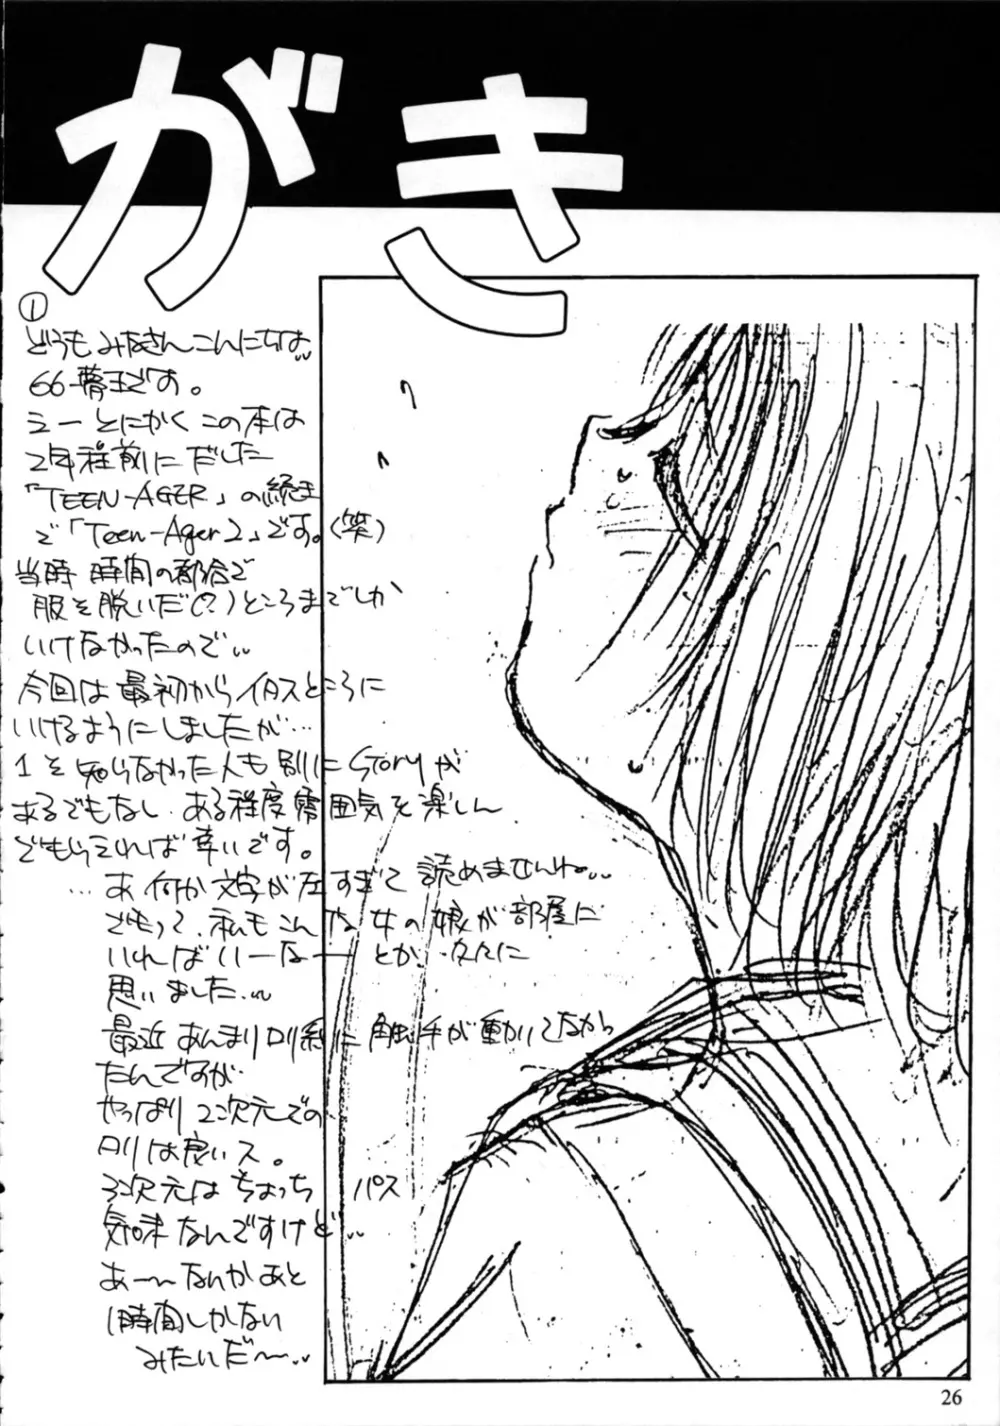 がき
①
どうもみなさんこんにちは
66一夢王です。
えーとにかくこの本は
2年程前にだした
「TEEN-AGER」の続き
で「Teen-Ager2」です。(笑)
当時時間の都合で
服を脱いだ(?)ところまでしか
いけなかったので
今回は最初からイタスところに
いけるようにしましたが…
1を知らなかった人も別にStoryが
あるでもなし、ある程度雰囲気を楽しん
でもらえれば幸いです。
…あ何か文字が左すぎて読めませんね
でもって、私もこんな女の娘が部屋に
いればいーなーとか、久々に
思いました
最近あんまりロリ系に触手が動いてなかっ
たんですが
やっぱり2次元での
ロリは良いス。
3次元はちょっちパス
気味なんですけど
あ~~なんかあと
1時間しかない
みたいだ~
26